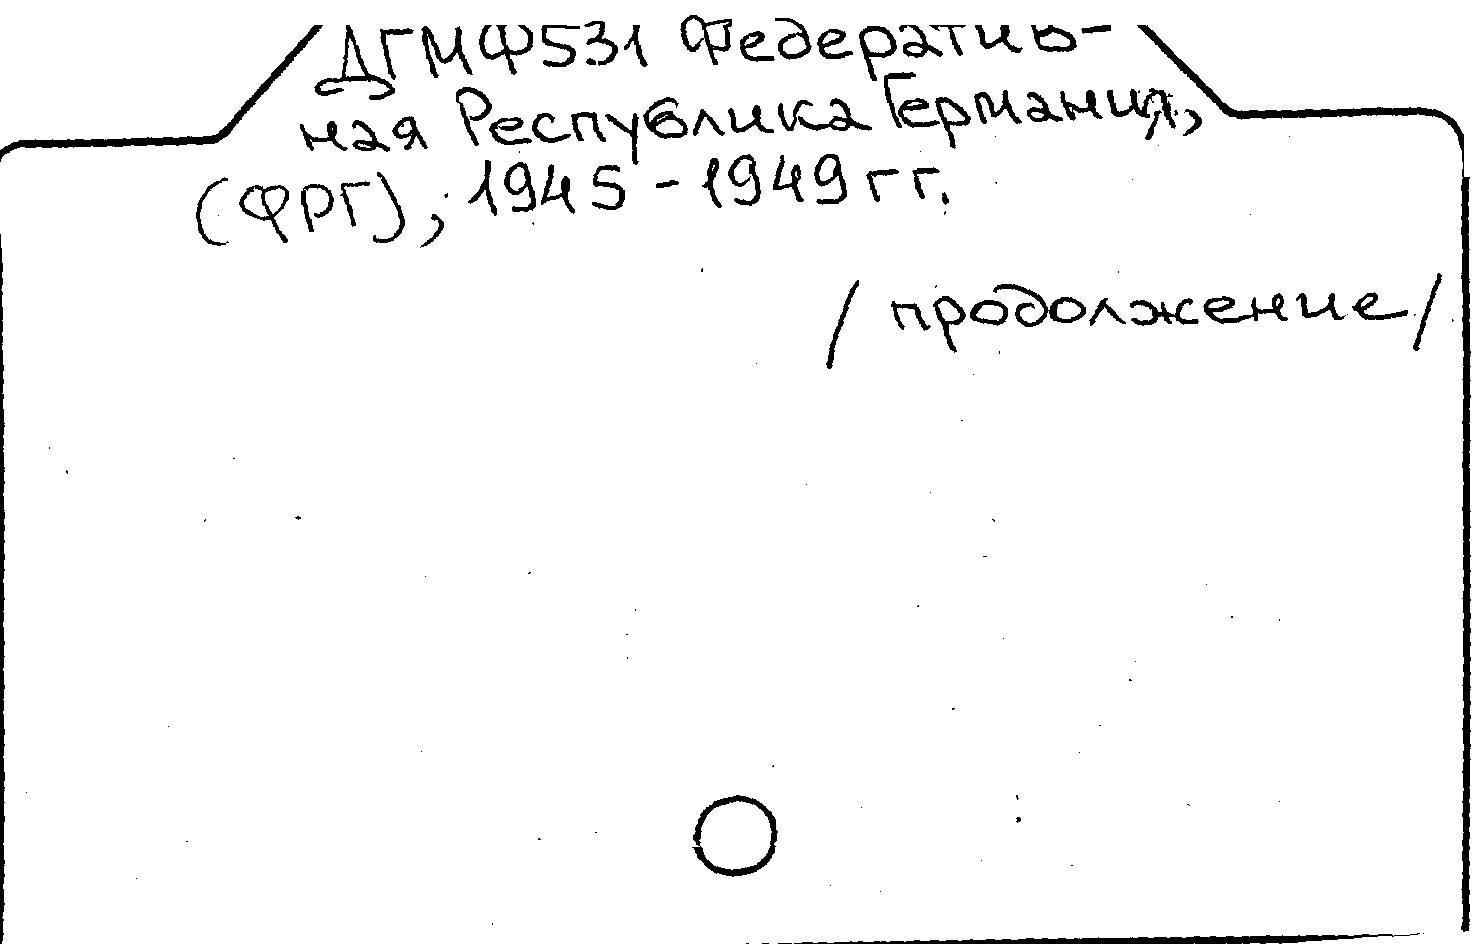 ДГМФ531 Федератив-
ная Республика Германия,
(ФРГ), 1945-1949 гг.
/ продолжение /